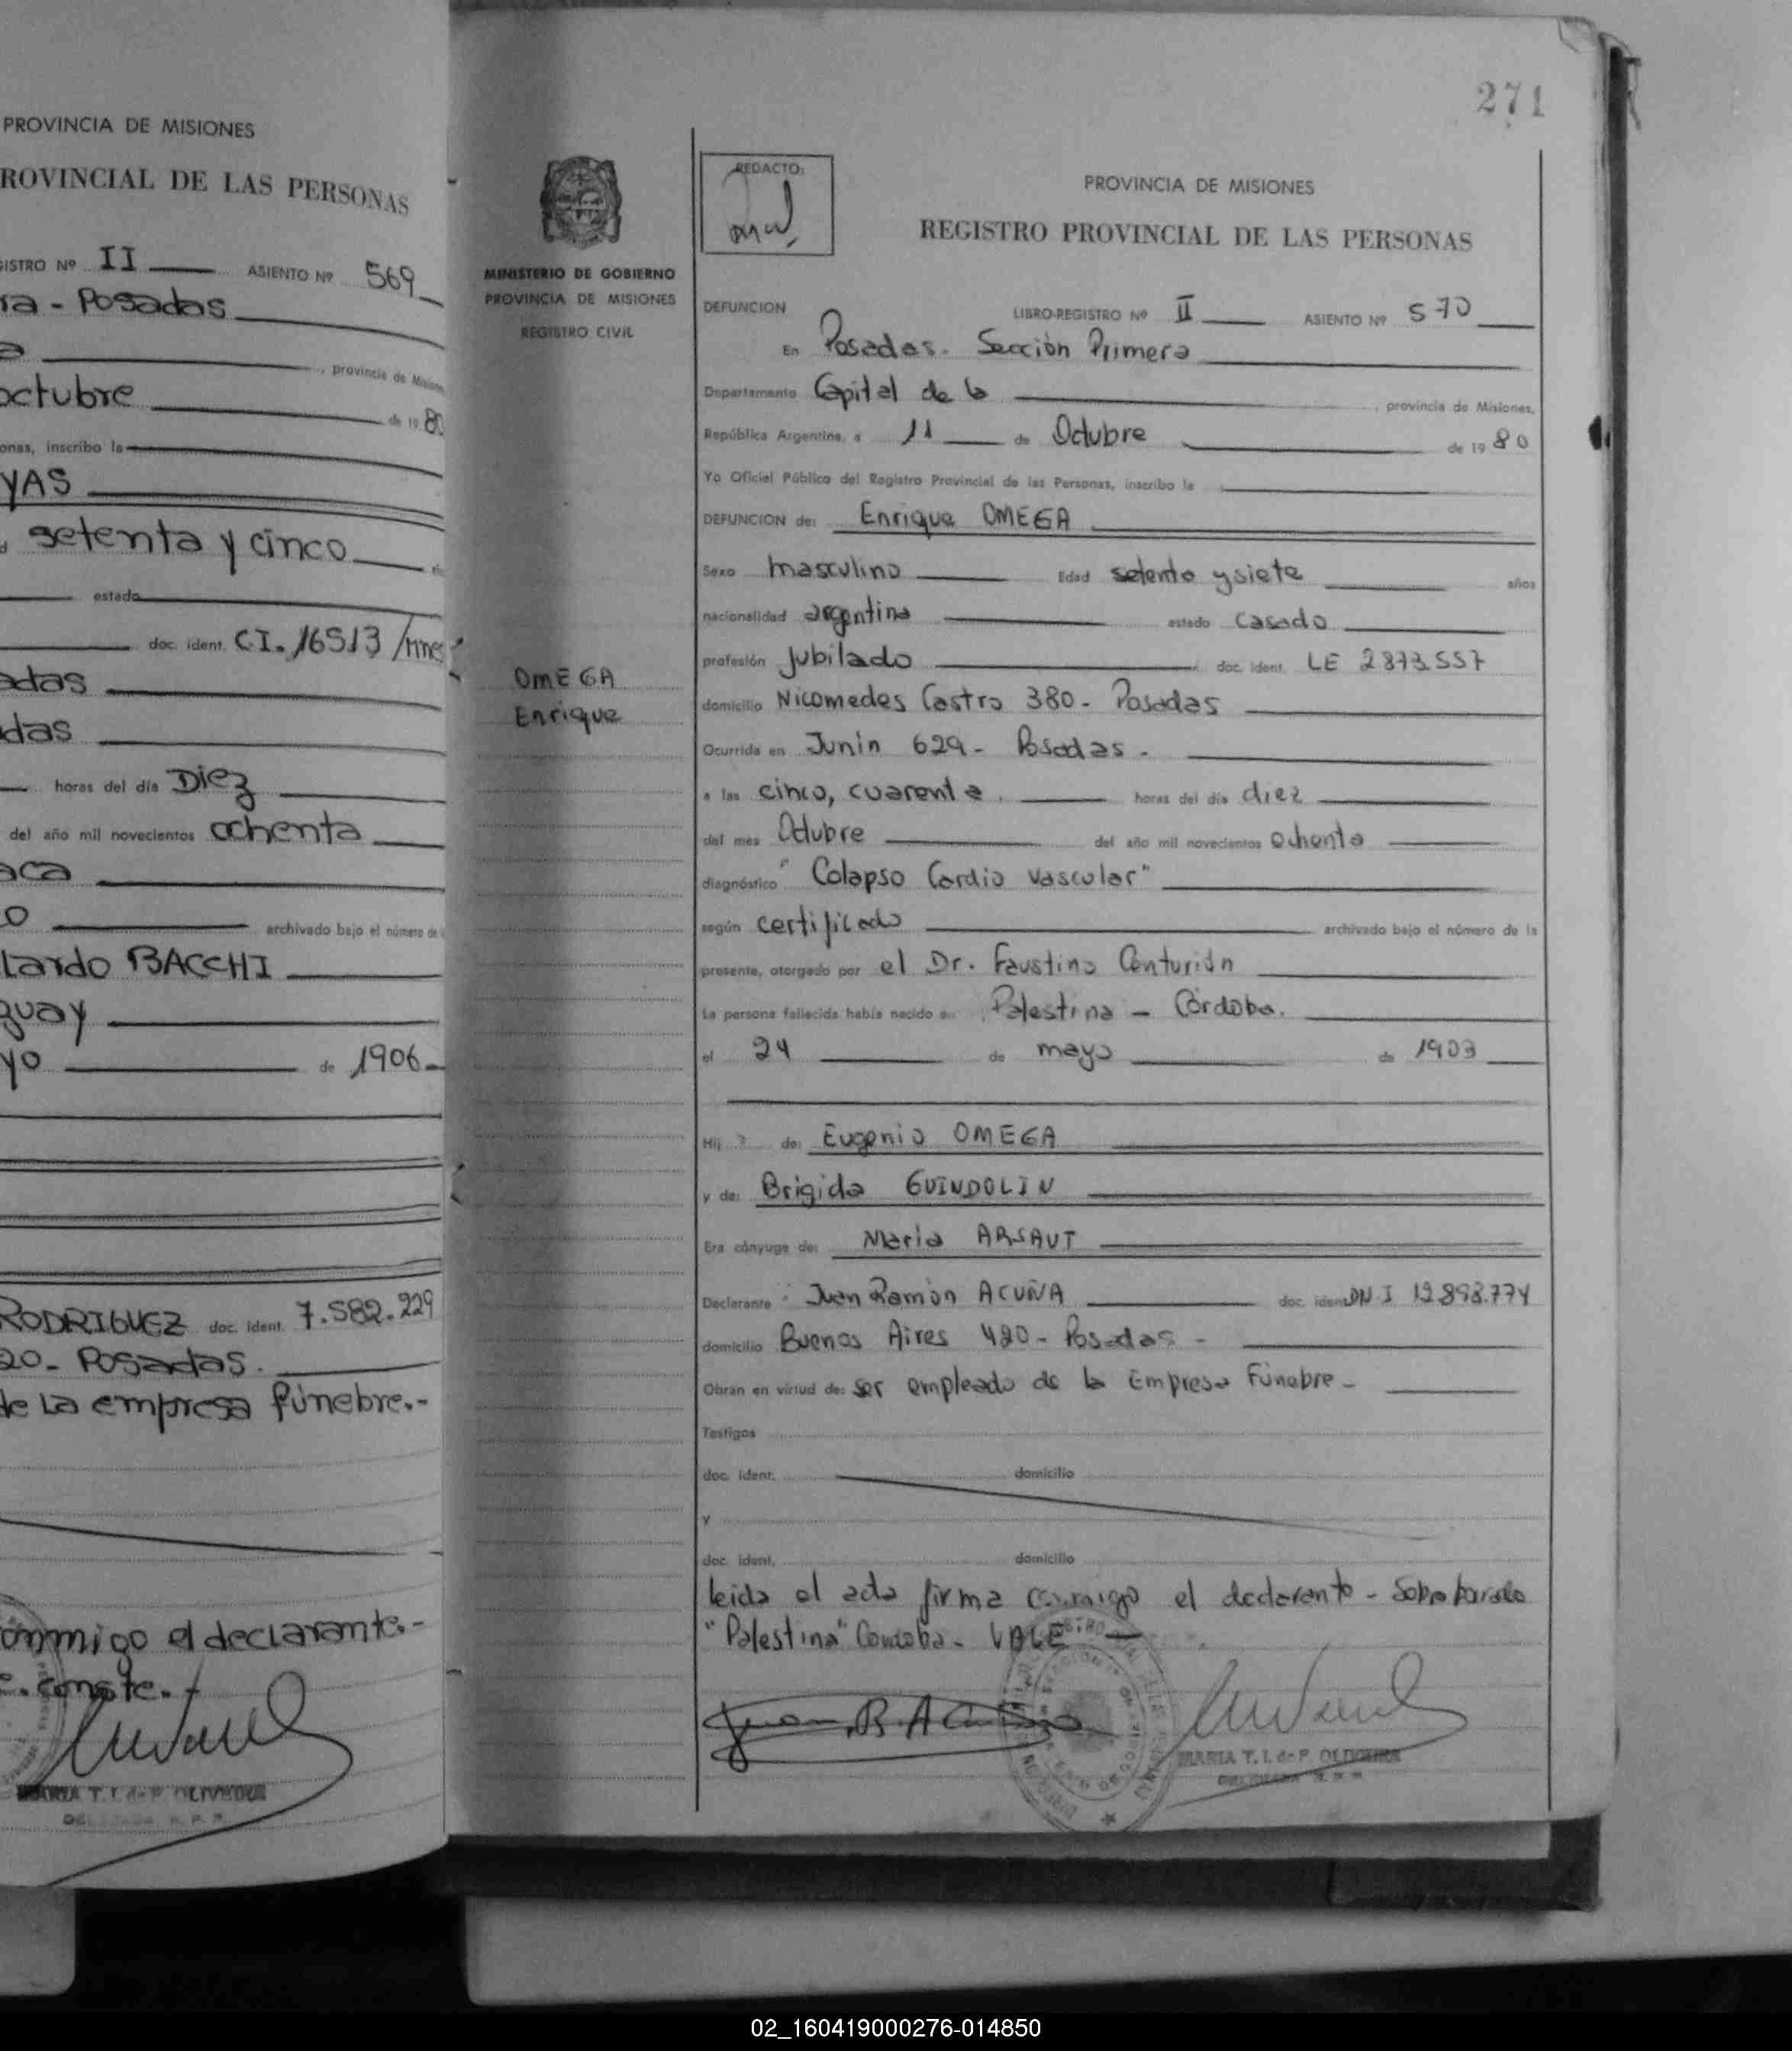 PROVINCIA DE MISIONES
ROVINCIAL DE LAS PERSONAS
ISTRO Nº II ASIENTO Nº 569
ra - Posadas
a , provincia de Misiones
octubre de 19 80
onas, inscribo la
YAS
setenta y cinco
estado
doc. ident. CI. 16513/mnes
adas
das
horas del día Diez
del año mil novecientos ochenta
aca
o archivado bajo el número de
Lardo BACCHI
guay
yo de 1906-
RODRIGUEZ doc. ident. 7.582.229
20- Posadas.
de La empresa fúnebre.-
onmigo el declarante.-
e. conste.-
MARIA T. I. de P. OLIVEIRA
DELEGADA R. P. P.
271
MINISTERIO DE GOBIERNO
PROVINCIA DE MISIONES
REGISTRO CIVIL
OMEGA
Enrique
REDACTO:
PROVINCIA DE MISIONES
REGISTRO PROVINCIAL DE LAS PERSONAS
DEFUNCION LIBRO-REGISTRO Nº II ASIENTO Nº 570
En Posadas. Sección Primera
Departamento Capital de la , provincia de Misiones,
República Argentina, a 11 de Octubre de 19 80
Yo Oficial Público del Registro Provincial de las Personas, inscribo la
DEFUNCION de: Enrique OMEGA
Sexo masculino Edad setenta y siete años
nacionalidad argentina estado casado
profesión jubilado doc. ident. LE 2873.557
domicilio Nicomedes Castro 380- Posadas
Ocurrida en Junin 629- Posadas -
a las cinco, cuarenta horas del día diez
del mes Octubre del año mil novecientos ochenta
diagnóstico "Colapso Cardio Vascular"
según certificado archivado bajo el número de la
presente, otorgado por el Dr. Faustino Centurión
La persona fallecida había nacido en Palestina - Córdoba.
el 24 de mayo de 1903
Hij ? de: Eugenio OMEGA
y de: Brigida GUINDOLIN
Era cónyuge de: Maria ARSAUT
Declarante Juan Ramón ACUÑA doc. ident. DNI 12.898.774
domicilio Buenos Aires 480- Posadas -
Obran en virtud de: ser empleado de la Empresa Fúnebre-
Testigos
doc. ident. domicilio
y
doc. ident. domicilio
leida el acta firma conmigo el declarante - Sobre borrado
"Palestina" Cordoba- VALE -
Juan R. Acuña
MARIA T. I. de P. OLIVEIRA
DELEGADA R. P. P.
02_160419000276-014850